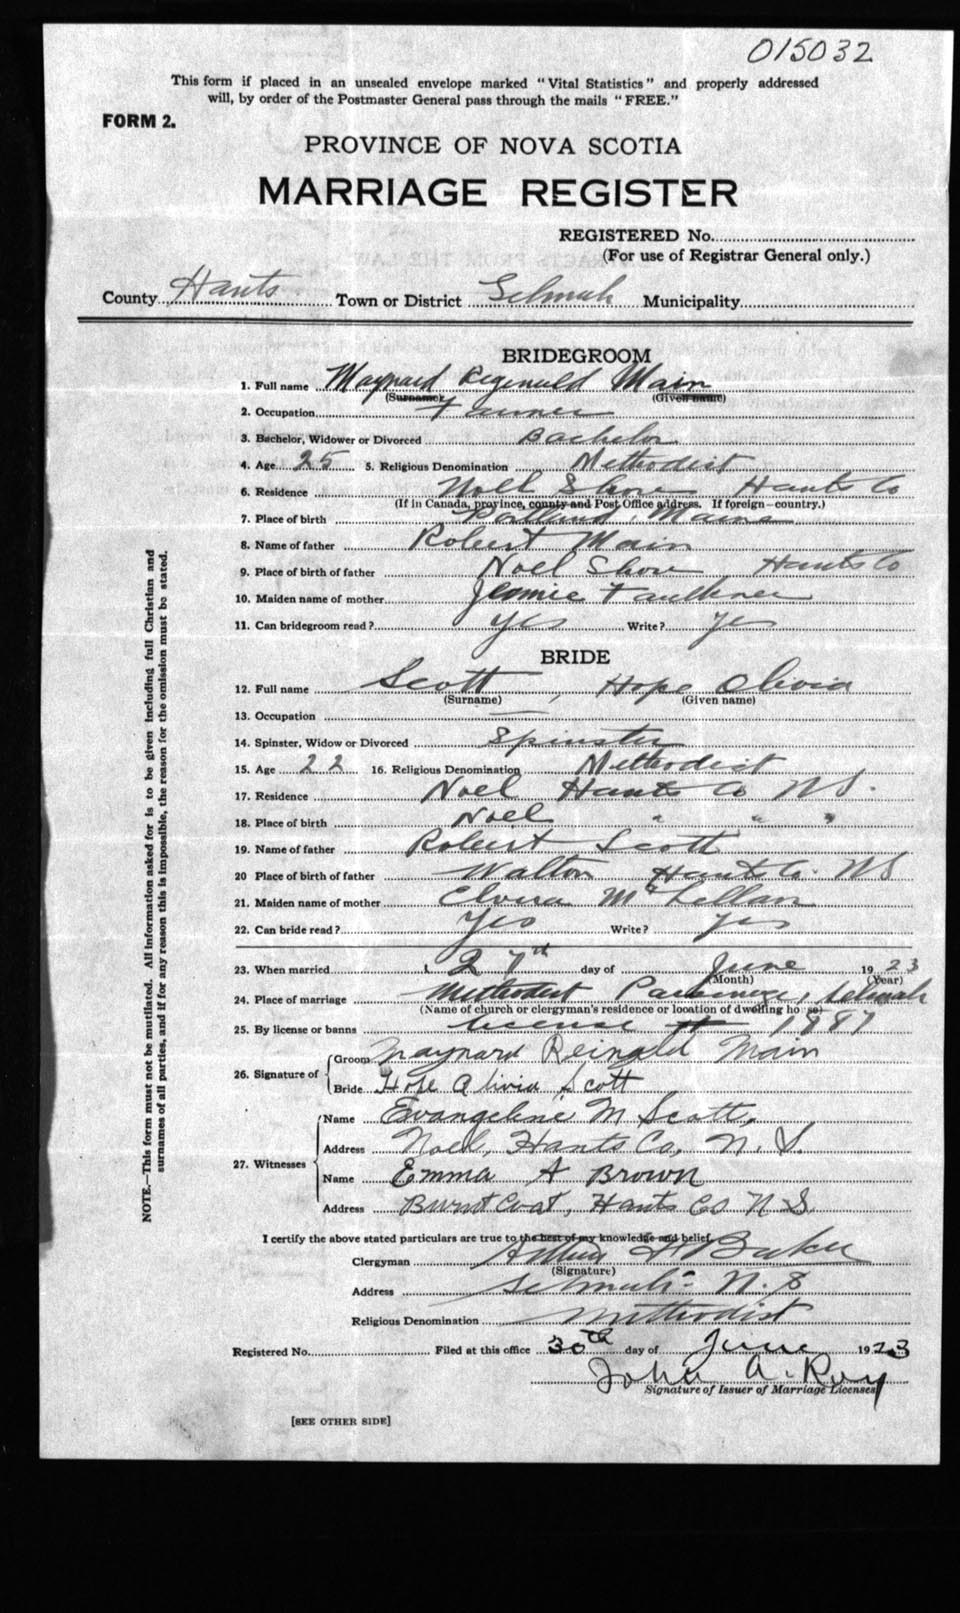 015032
This form if placed in an unsealed envelope marked "Vital Statistics" and properly addressed
will, by order of the Postmaster General pass through the mails "FREE."
FORM 2.
PROVINCE OF NOVA SCOTIA
MARRIAGE REGISTER
REGISTERED No.
(For use of Registrar General only.)
County Hants Town or District Selmah Municipality
BRIDEGROOM
1. Full name Maynard Reginald Main
(Surname) (Given name)
2. Occupation Farmer
3. Bachelor, Widower or Divorced Bachelor
4. Age 25 5. Religious Denomination Methodist
6. Residence Noel Shore Hants Co
(If in Canada, province, county and Post Office address. If foreign—country.)
7. Place of birth Portland, Maine
8. Name of father Robert Main
9. Place of birth of father Noel Shore Hants Co
10. Maiden name of mother Jennie Faulkner
11. Can bridegroom read? Yes Write? yes
BRIDE
12. Full name Scott, Hope Olivia
(Surname) (Given name)
13. Occupation —
14. Spinster, Widow or Divorced Spinster
15. Age 22 16. Religious Denomination Methodist
17. Residence Noel Hants Co NS.
18. Place of birth Noel " " "
19. Name of father Robert Scott
20 Place of birth of father Walton Hants Co. NS
21. Maiden name of mother Elvira McLellan
22. Can bride read? Yes Write? yes
23. When married 27th day of June 1923
(Month) (Year)
24. Place of marriage Methodist Parsonage, Selmah
(Name of church or clergyman's residence or location of dwelling house)
25. By license or banns license # 1987
26. Signature of Groom Maynard Reinald Main
Bride Hope Olivia Scott
27. Witnesses Name Evangeline M Scott,
Address Noel, Hants Co, N. S.
Name Emma A Brown
Address Burnt Coat, Hants Co N S.
I certify the above stated particulars are true to the best of my knowledge and belief.
Clergyman Arthur H Baker
(Signature)
Address Selmah - N. S
Religious Denomination Methodist
Registered No. Filed at this office 30th day of June 1923
John A. Roy
Signature of Issuer of Marriage Licenses
[SEE OTHER SIDE]
NOTE.—This form must not be mutilated. All information asked for is to be given including full Christian and
surnames of all parties, and if for any reason this is impossible, the reason for the omission must be stated.